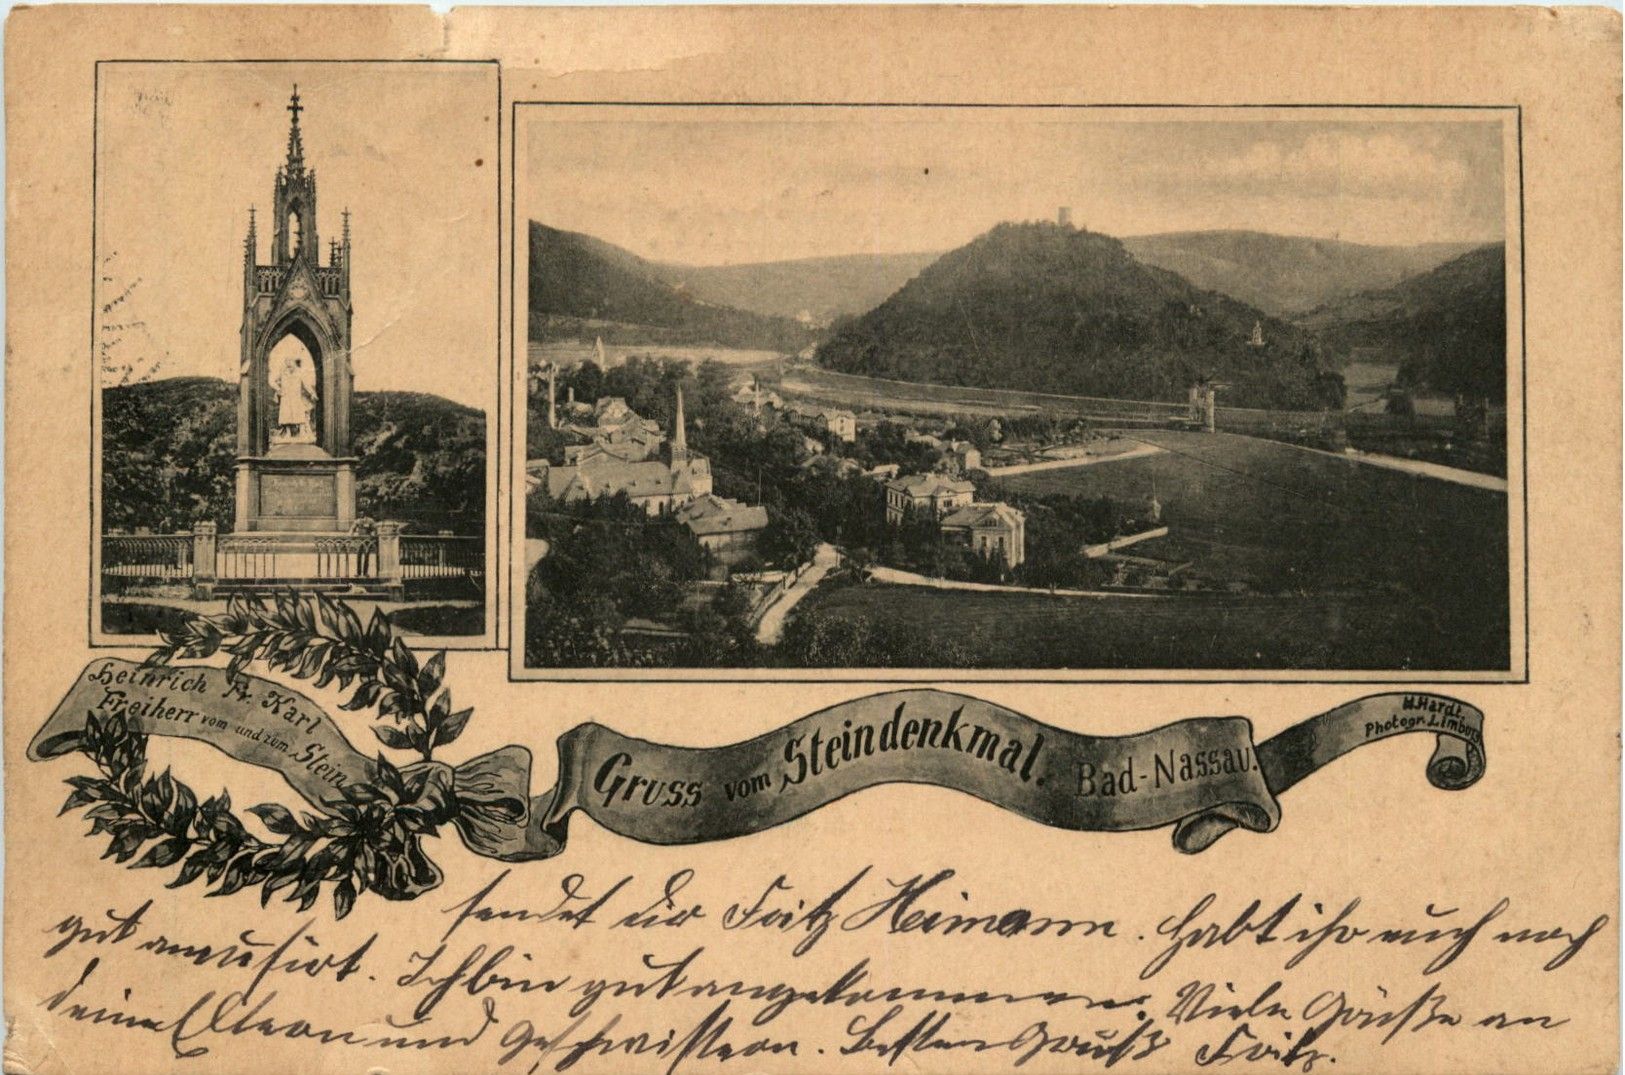 Heinrich Fr. Karl
Freiherr vom und zum Stein
Gruss vom Steindenkmal. Bad-Nassau.
M. Hardt,
Photogr. Limburg
sendet dir Fritz Heimann. Habt ihr euch noch
gut amusirt. Ich bin gut angekommen. Viele Grüße an
deine Eltern und Geschwistern. Besten Gruß Fritz.